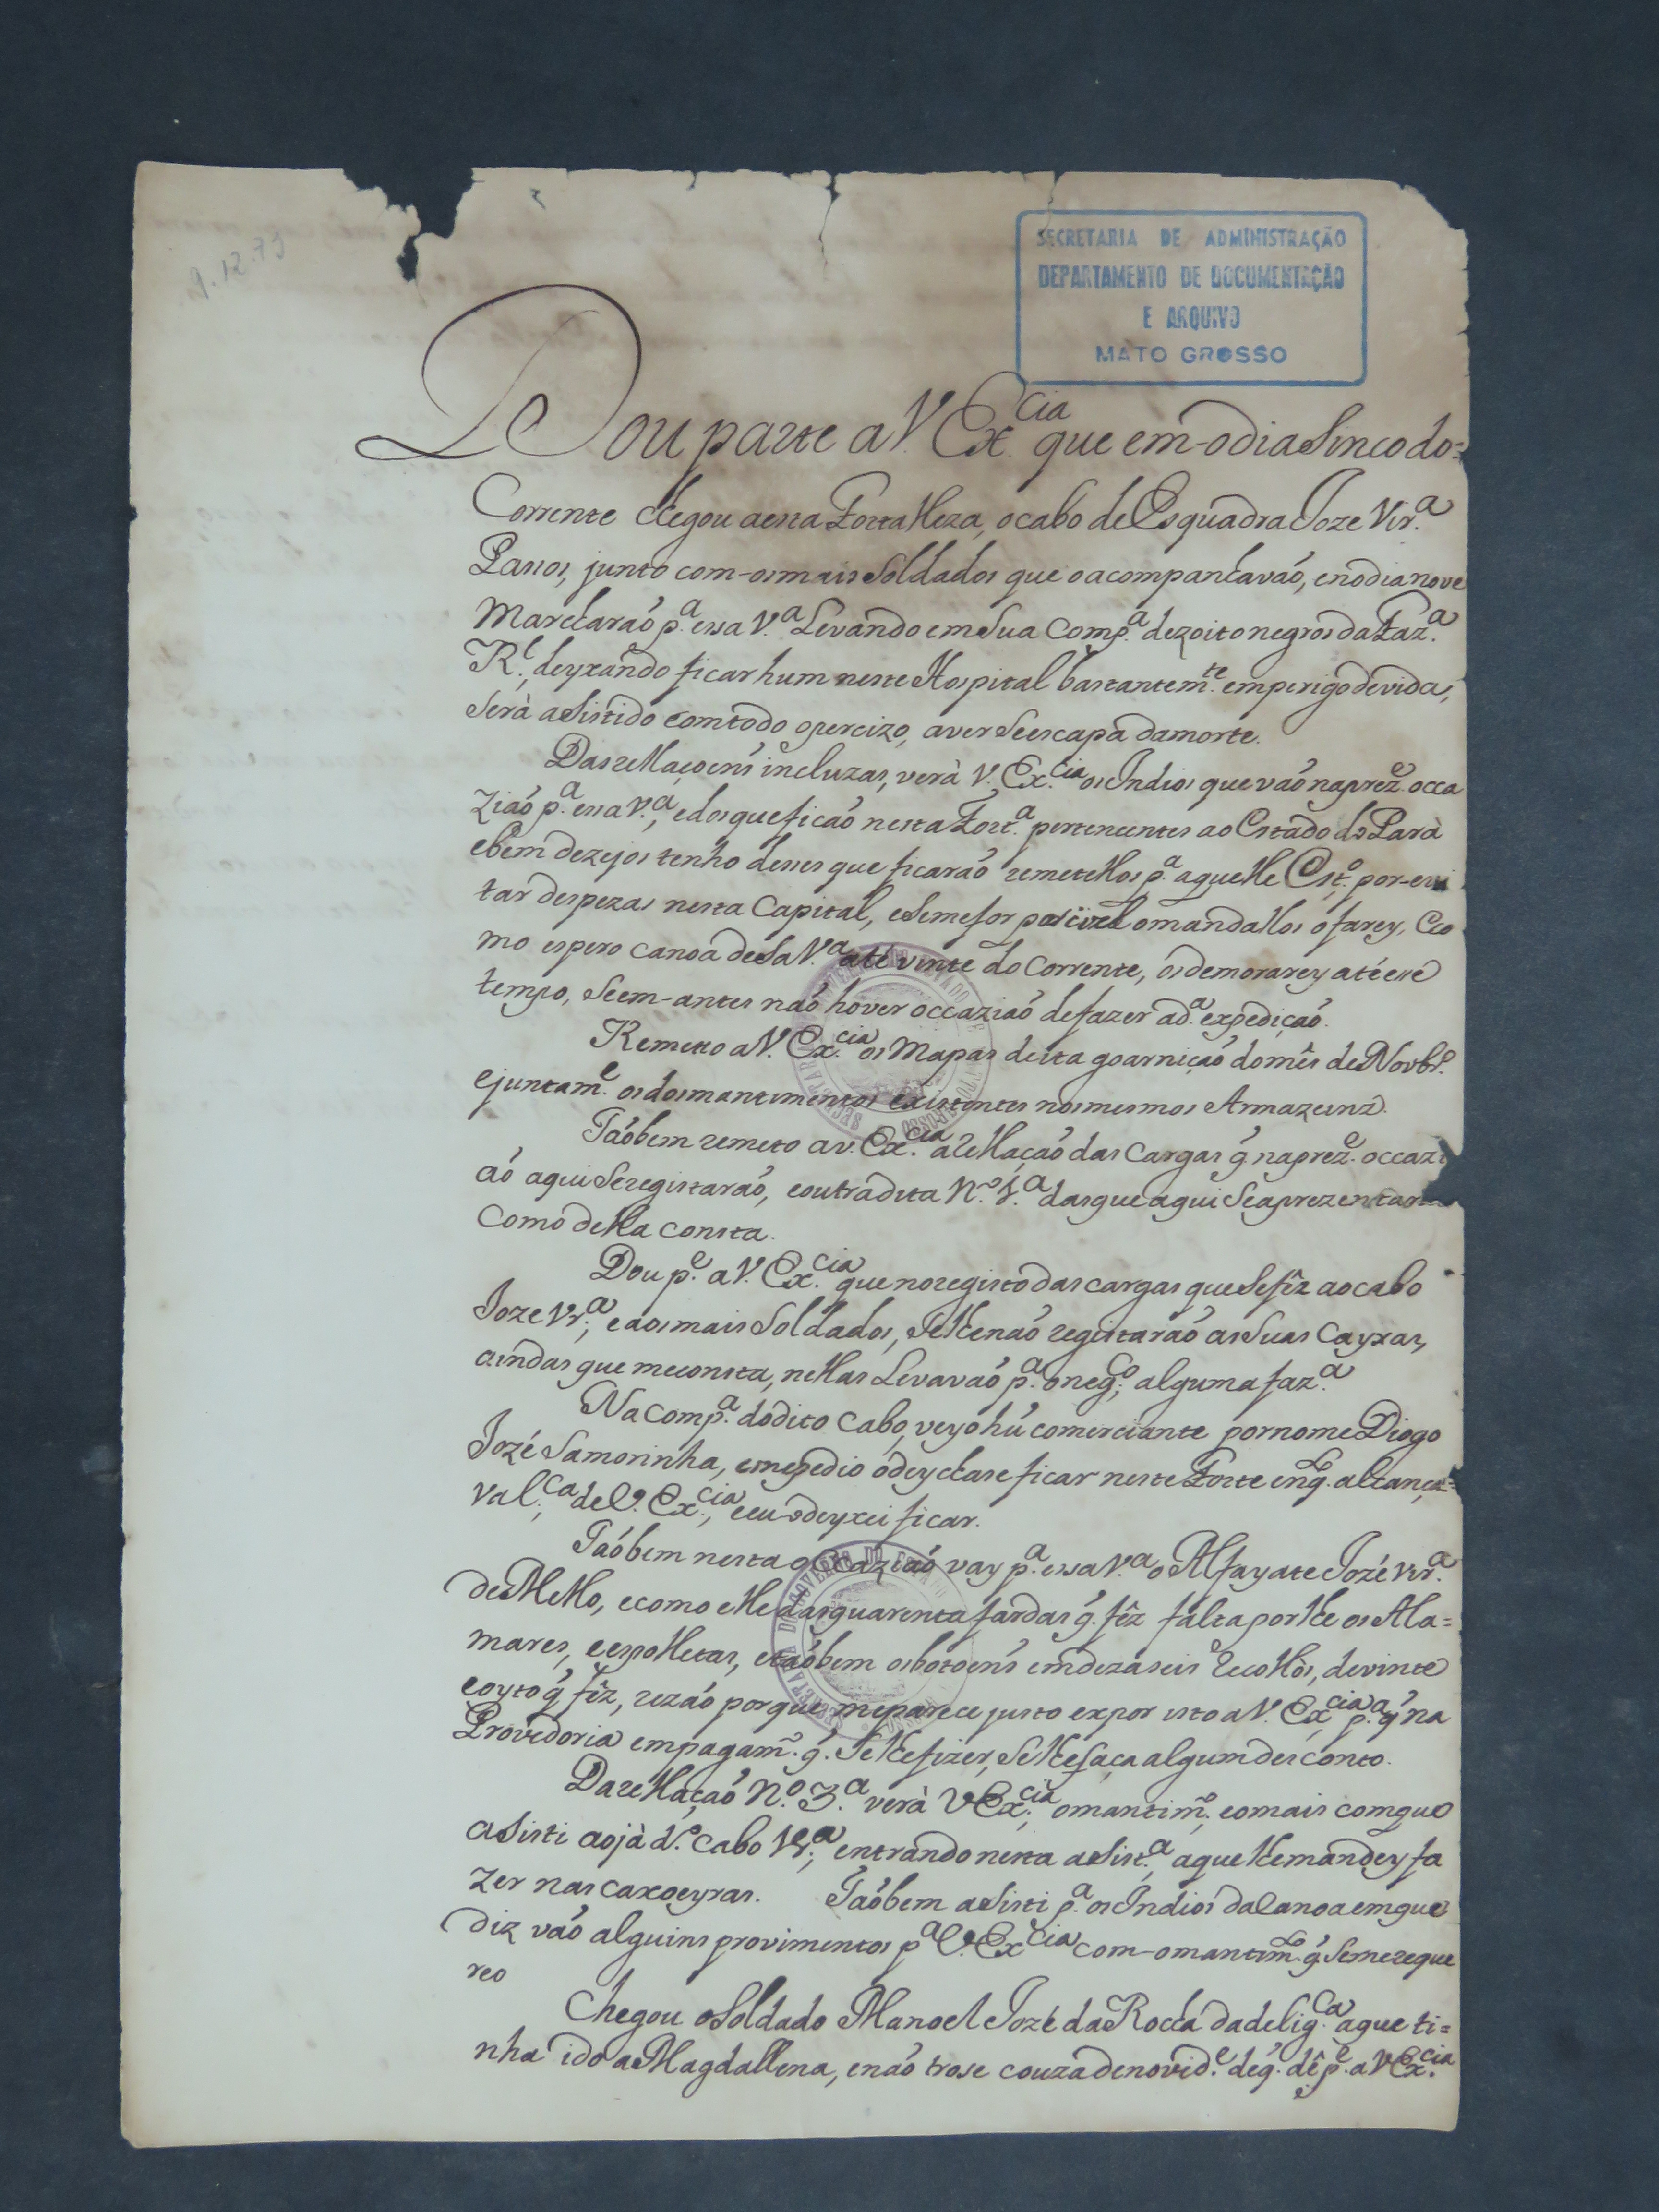 9.12.79
SECRETARIA DE ADMINISTRAÇÃO
DEPARTAMENTO DE DOCUMENTAÇÃO
E ARQUIVO
MATO GROSSO
Dou parte a V. Ex.cia que em-o dia Sinco do=
Corrente chegou a essa Fortalleza, o cabo de Esquadra Joze Vir.a
Passos, junto com-os mais Soldados que o acompanhavaó, e no dia nove
Marcharaó p.a essa V.a Levando em Sua Comp.a dezoito negros da Faz.a
R.l, deyxando ficar hum neste Hospital bastantem.te em perigo de vida,
Serà aSistido com todo o percizo, a ver Se escapa da morte.
Das rellaçoens incluzas, verà V. Ex.cia os Indios que vaó na prez.e occa
ziaó p.a essa V.a, e dos que ficaó nesta Fort.a pertencentes ao Estado do Parà
e bem dezejos tenho desses que ficaraó remetellos p.a aquelle Est.o por-evi
tar despezas nesta Capital, e Se me for posivel o mandallos o farey, Co
mo espero canoa deSa V.a até vinte do Corrente, os demorarey até esse
tempo, Se em-antes naó hover occaziaó de fazer a d.a expediçaó.
Remetto a V. Ex.cia os Mapas desta goarniçaó do mês de Novbr.o
e juntam.e os dos mantimentos existentes nos mesmos Armazeins.
Taóbem remeto a V. Ex.cia a rellaçaó das Cargas q́ na prez.e occazi
aó aqui Se registaraó, e outra dita N.o 4.a das que aqui Se aprezentar
Como della consta.
Dou p.e a V. Ex.cia que no registo das cargas que Se fêz ao cabo
Joze Vr.a, e aos mais Soldados, Se lhe naó registaraó as Suas Cayxas,
aindas que me consta, nellas Levavaó p.a o neg.co, alguma faz.a
Na Comp.a do dito Cabo, veyo hú comerciante por nome Diogo
Jozé Samorinha, e me pedio o deychase ficar neste Forte em q.to alcança=
val.ca de V. Ex.cia, e eu o deyxei ficar.
Taóbem nesta occaziaó vay p.a essa V.a o Alfayate Jozé Vir.a
de Mello, e como elle das quarenta fardas q́. fêz falta por lhe os Ala=
mares, e espolletas, e taóbem os botoens em dezaseis recollòs, de vinte
e oyto q́ fêz, rezaó porque me parece justo expor isto a V. Ex.cia p.a q́ na
Provedoria em pagam.o q́. Se lhe fizer, Se lhe faça algum desconto.
Da rellaçaó N.o 3.a verà V Ex.cia, o mantim.o, e o mais com que
aSisti ao jà d.o Cabo Vr.a, entrando nesta aSist.a, a que lhe mandey fa
zer nas caxoeyras. Taóbem aSisti p.a os Indios da Canoa em que
diz vaó alguins provimentos p.a V. Ex.cia com-o mantim.to q́ Se me reque
reo
Chegou o Soldado Manoel Jozé da Rocha da delig.ca a que ti=
nha ido a Magdallena, e naó trose couza de novid.e de q́. dê p.e a V Ex.cia